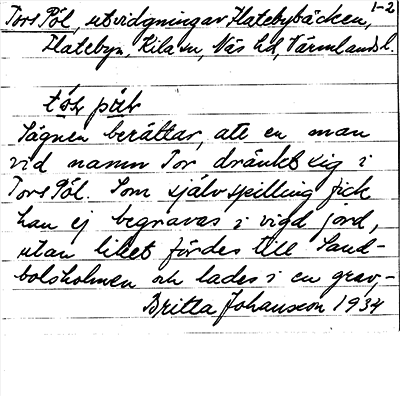 1-2
Tors Pöl, utvidgning av Flatebybäcken,
Flatebyn, Kila sn, Näs hd, Värmlands l.
Sägnen berättar, att en man
vid namn Tor dränkt sig i
Tors Pöl. Som självspilling fick
han ej begravas i vigd jord,
utan liket fördes till Sand-
bolsholmen och lades i en grav,-
Britta Johansson 1934